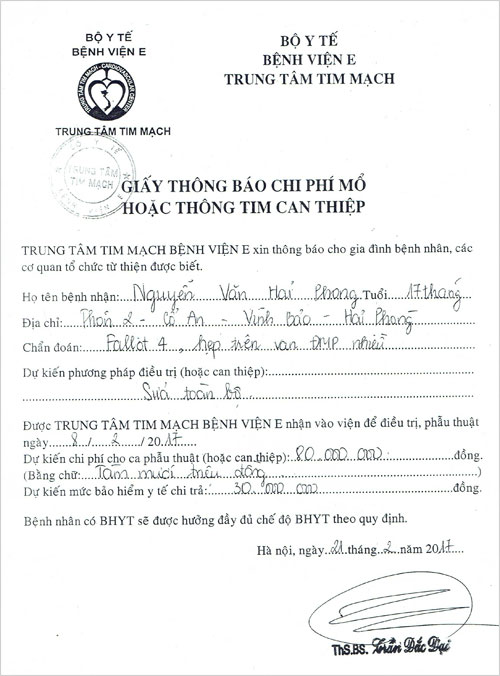 BỘ Y TẾ
BỆNH VIỆN E
TRUNG TÂM TIM MẠCH - CARDIOVASCULAR CENTER
TRUNG TÂM TIM MẠCH
BỘ Y TẾ
BỆNH VIỆN E
TRUNG TÂM TIM MẠCH
BỘ Y TẾ
TRUNG TÂM
TIM MẠCH
BỆNH VIỆN E
GIẤY THÔNG BÁO CHI PHÍ MỔ
HOẶC THÔNG TIM CAN THIỆP
TRUNG TÂM TIM MẠCH BỆNH VIỆN E xin thông báo cho gia đình bệnh nhân, các
cơ quan tổ chức từ thiện được biết.
Họ tên bệnh nhân: Nguyễn Văn Hai Phong Tuổi 17 tháng
Địa chỉ: Thôn 2 - Cổ Am - Vĩnh Bảo - Hải Phòng
Chẩn đoán: Fallot 4, hẹp trên van ĐMP nhiều
Dự kiến phương pháp điều trị (hoặc can thiệp):
Sửa toàn bộ
Được TRUNG TÂM TIM MẠCH BỆNH VIỆN E nhận vào viện để điều trị, phẫu thuật
ngày 8 / 2 / 2017
Dự kiến chi phí cho ca phẫu thuật (hoặc can thiệp): 80.000.000 đồng.
(Bằng chữ: Tám mươi triệu đồng )
Dự kiến mức bảo hiểm y tế chi trả: 30.000.000 đồng.
Bệnh nhân có BHYT sẽ được hưởng đầy đủ chế độ BHYT theo quy định.
Hà nội, ngày 21 tháng 2 năm 2017
ThS.BS. Trần Đắc Đại